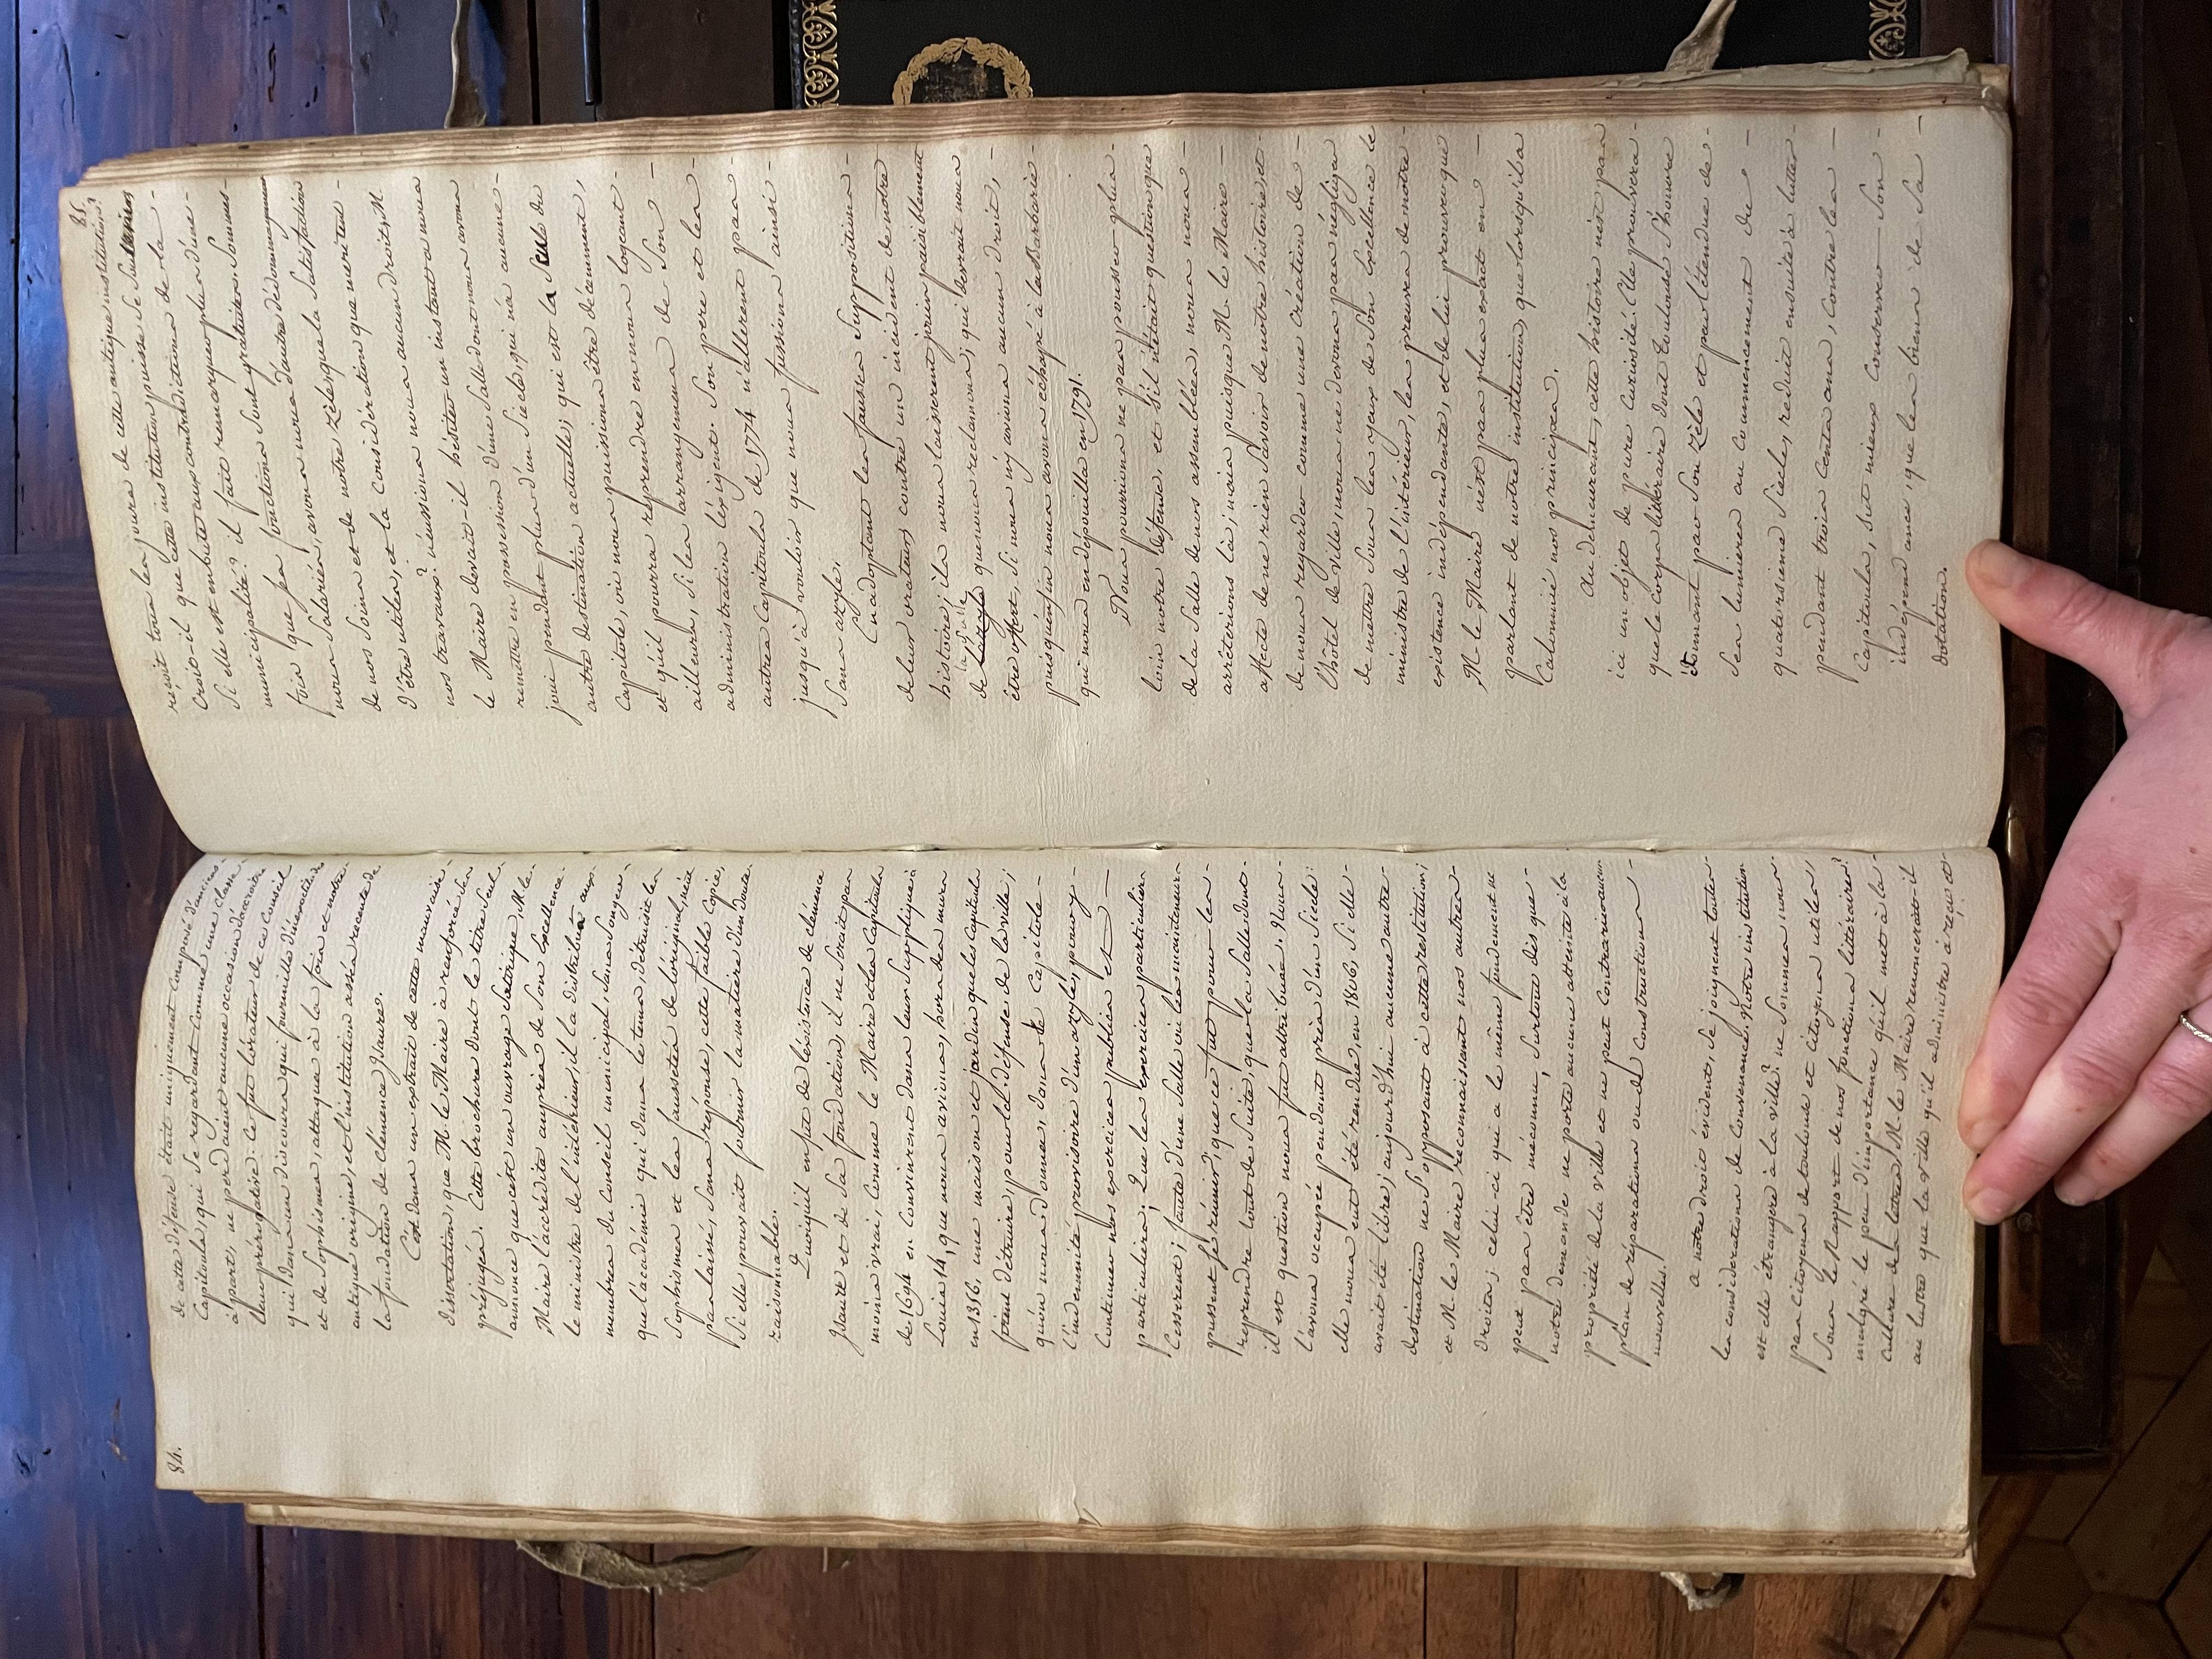 84.
de cette défense était uniquement composé d'anciens
Capitouls, qui se regardant comme une classe
à part, ne perdaient aucune occasion d'accroître
leur prérogative. Ce fut l'orateur de ce Conseil
qui dans un discours qui fourmille d'inexactitudes
et de Sophismes, attaqua à la fois et notre
antique origine, et l'institution assés recente de
la fondation de clémence Isaure.
C'est dans un extrait de cette mauvaise
dissertation, que M. le Maire à renforcé ses
préjugés. Cette brochure dont le titre seul
annonce que c'est un ouvrage Satirique, M. le
Maire l'accrédite auprès de Son Excellence
le ministre de l'intérieur, il la distribua aux
membres du Conseil municipal, Sans Songer
que l'académie qui dans le tems, détruisit les
Sophismes et les faussetés de l'original, n'eut
pas laissé, sans réponse, cette faible Copie,
Si elle pouvait fournir la matiere d'un doute
raisonnable.
Quoiqu'il en fut de l'existence de clémence
Isaure et de Sa fondation, il ne Serait pas
moins vrai, comme le Maire et les Capitouls
de 1694 en Convinrent dans leur Supplique à
Louis 14, que nous avions, hors des murs
en 1356, une maison et jardin que les Capitouls
firent détruire, pour la défense de la ville;
qu'on nous donna, dans le Capitole
l'indemnité provisoire d'un azyle, pour y
Continuer nos exercices publics et
particuliers; Que les exercices particuliers
Cesserent, faute d'une Salle où les mainteneurs
pussent se réunir; que ce fut pour les
reprendre tout de Suite, que la Salle dont
il est question nous fut attribuée. Nous
l'avons occupée pendant près d'un Siecle:
elle nous eut été rendue, en 1806, Si elle
avait été libre; aujourd'hui aucune autre
destination ne s'opposant à cette restitution;
et M. le Maire reconnaissant nos autres
droits; celui-ci qui a le même fondement ne
peut pas être méconnu, Surtout dès que
notre demande ne porte aucune atteinte à la
propriété de la ville et ne peut Contrarier aucun
plan de réparations ou de Constructions
nouvelles.
a notre droit évident, Se joignent toutes
les considérations de Convenance. Notre institution
est elle étrangere à la ville? ne Sommes nous
pas Citoyens de toulouse et Citoyens utiles,
Sous le Rapport de nos fonctions littéraires?
malgré le peu d'importance qu'il met à la
culture des lettres, M. le Maire renoncerait-il
au lustre que la ville qu'il administre à reçu et
85.
reçoit tous les jours de cette antique institution?
Croit-il que cette institution puisse Se Soutenir
Si elle est en butte aux contradictions de la
municipalité? il faut remarquer plus d'une
fois que ses fonctions Sont gratuites. Sommes
nous Salariés, avons nous d'autre dédommagement
de nos Soins et de notre Zèle que la Satisfaction
d'être utiles, et la considération que méritent
nos travaux? n'eussions nous aucun droit, M.
le Maire devait-il hésiter un instant à nous
remettre en possession d'une Salle dont nous avons
joui pendant plus d'un Siecle, qui n'a aucune
autre destination actuelle, qui est la Seule du
Capitole, où nous puissions être décemment,
et qu'il pourra reprendre en nous logeant
ailleurs, Si les arrangemens de Son
administration l'exigent. Son pere et les
autres Capitouls de 1774 n'allerent pas
jusqu'à vouloir que nous fussions ainsi
Sans azyle.
En adoptant les fausses Suppositions
de leur orateur, contre un incident de notre
histoire, ils nous laisserent jouir paisiblement
de la salle que nous reclamons, qui devrait nous
être offert, Si nous n'y avions aucun droit,
puisqu'enfin nous avons échapé à la Barbarie
qui nous en dépouilla en 1791.
Nous pourrions ne pas pousser plus
loin notre défense, et S'il n'était question que
de la Salle de nos assemblées, nous nous
arrêterions là; mais puisque M. le Maire
affecte de ne rien Savoir de notre histoire, et
de nous regarder comme une Création de
l'hôtel de Ville, nous ne devons pas négliger
de mettre Sous les yeux de Son Excellence le
ministre de l'intérieur, les preuves de notre
existence indépendante, et de lui prouver que
M. le Maire n'est pas plus exact en
parlant de notre institution, que lorsqu'il a
Calomnié nos principes.
Au demeurant, cette histoire n'est pas
ici un objet de pure Curiosité. Elle prouvera
que le Corps littéraire dont Toulouse S'honore
étonnant par Son Zèle et par l'étendue de
Ses lumieres au commencement du
quatorsieme Siecle, reduit ensuite à lutter
pendant trois Cents ans, Contre les
Capitouls, Sut mieux Conserver Son
indépendance, que les biens de Sa
dotation.